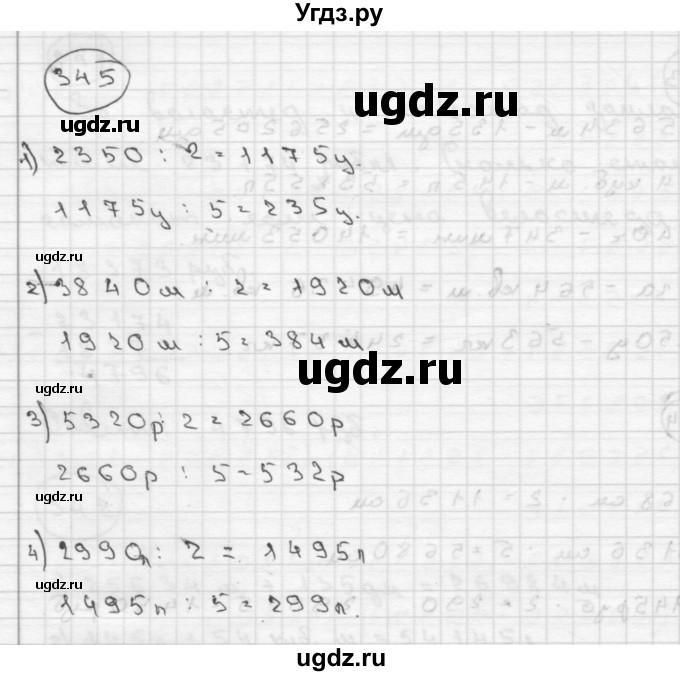 Угдз.ру
345
ugdz.ru
ugdz.ru
1) 2350 : 2 = 1175ц.
1175ц : 5 = 235ц.
ugdz.ru
2) 3840м : 2 = 1920м
1920м : 5 = 384м
ugdz.ru
ugdz.ru
3) 5320р : 2 = 2660р
2660р : 5 = 532р
ugdz.ru
4) 2990л : 2 = 1495л
ugdz.ru
1495л : 5 = 299л.
ugdz.ru